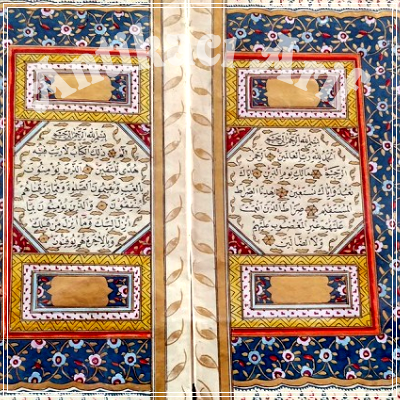 بسم الله الرحمن الرحيم
الحمد لله رب العالمين الرحمن
الرحيم مالك يوم الدين اياك
نعبد واياك نستعين اهدنا الصراط
المستقيم صراط الذين انعمت
عليهم غير المغضوب عليهم
ولا الضالين
بسم الله الرحمن الرحيم
الم ذلك الكتاب لا ريب فيه
هدى للمتقين الذين يؤمنون
بالغيب ويقيمون الصلوة ومما رزقناهم
ينفقون والذين يؤمنون بما
انزل اليك وما انزل من قبلك
وبالاخرة هم يوقنون